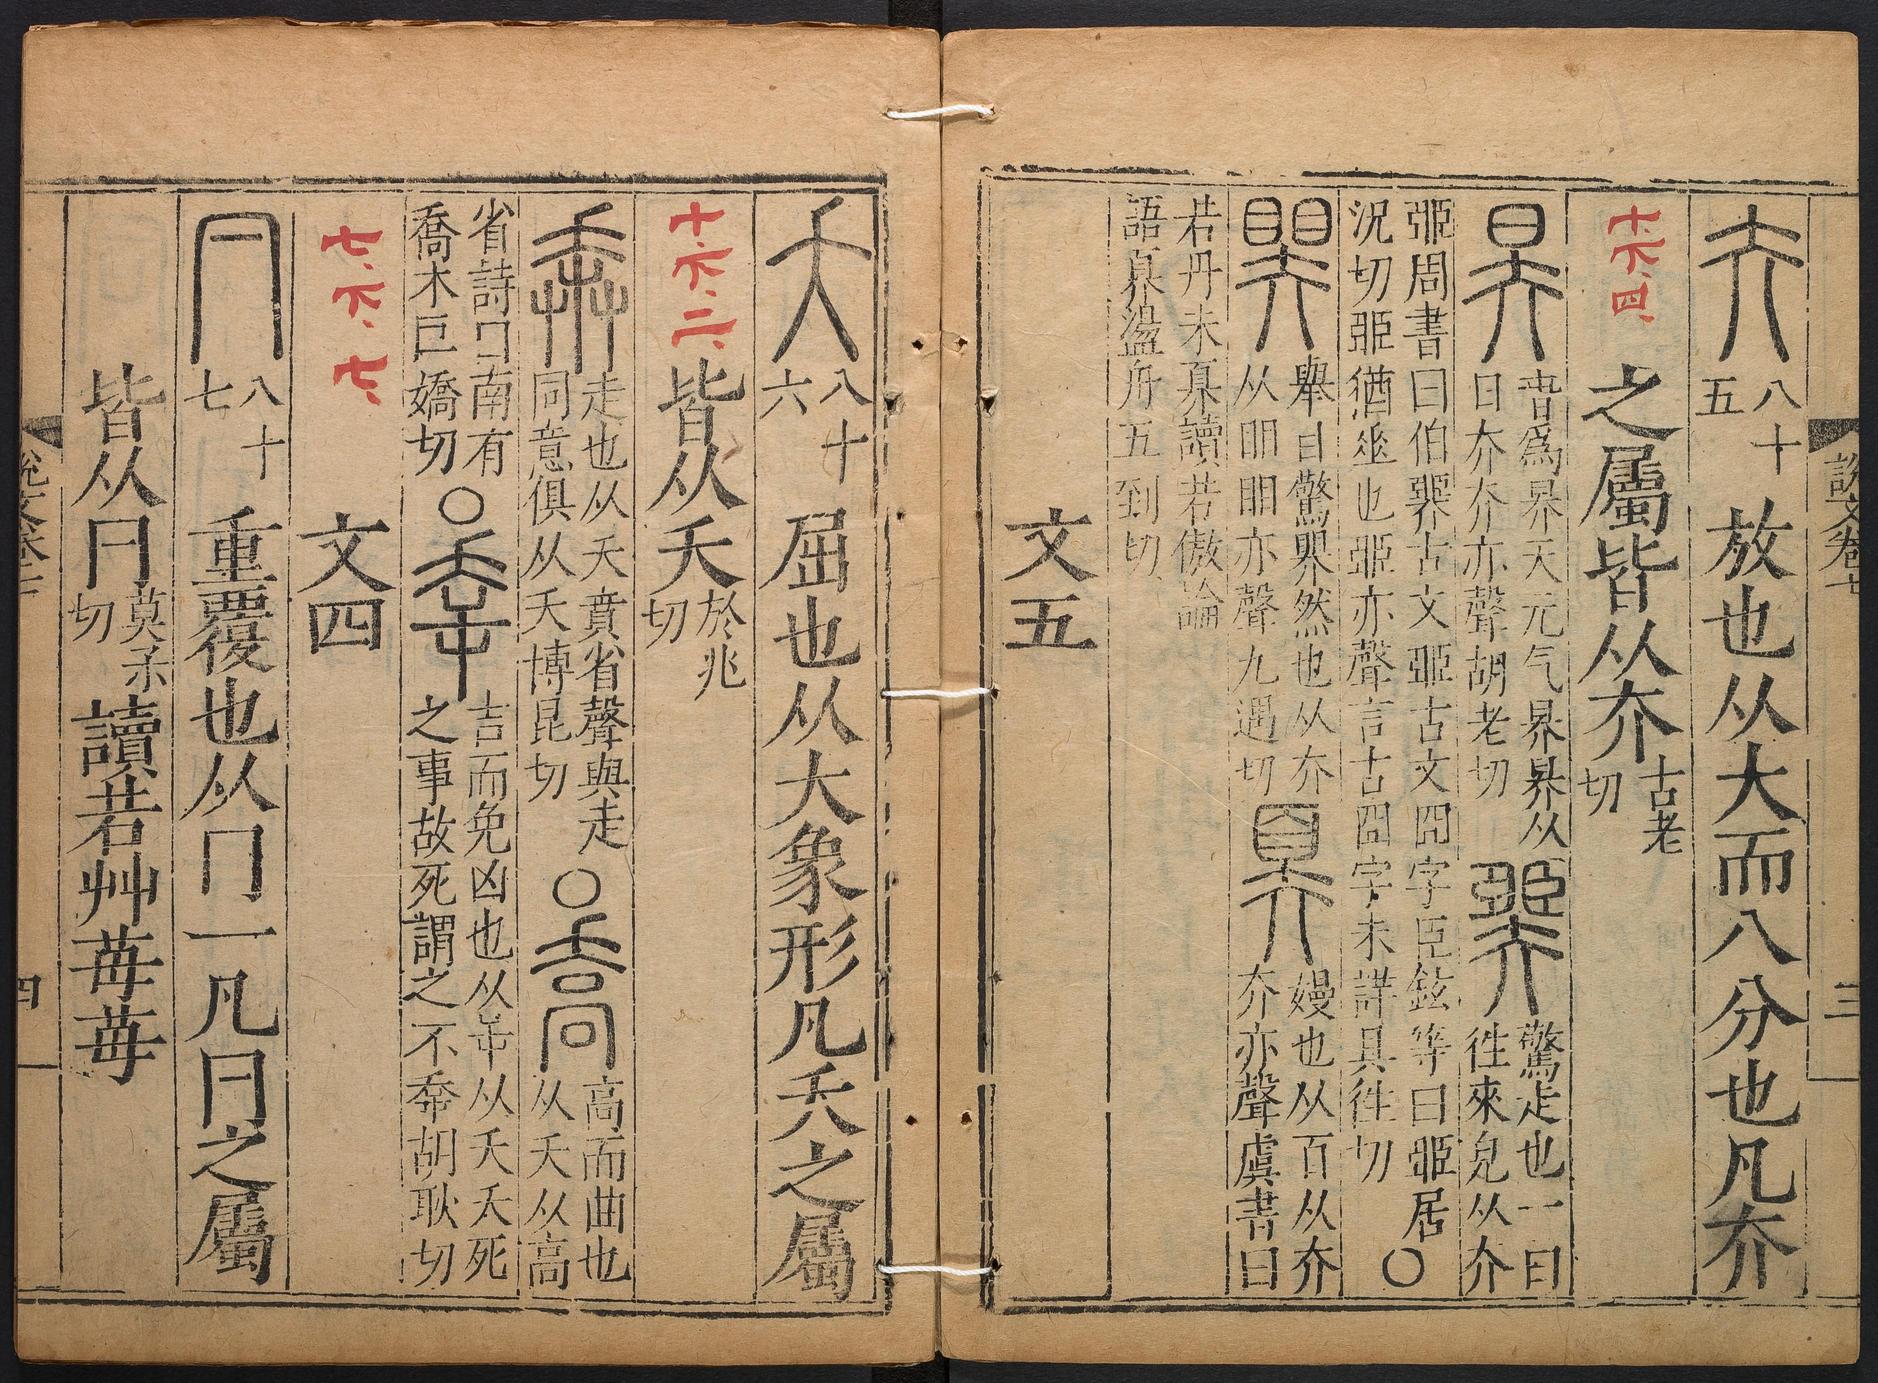 說文卷七 三
夰 八十五 放也从大而八分也凡夰
十.下.四. 之屬皆从夰 古老切
昦 春爲昦天元气昦昦从日夰夰亦聲胡老切 臩 驚走也一曰往來皃从夰
臦周書曰伯臩古文臦古文冏字臣鉉等曰臦居況切臦猶乖也臦亦聲言古冏字未詳具往切○
𡙇 舉目驚𡙇然也从夰从䀠䀠亦聲九遇切 奡 嫚也从百从夰夰亦聲虞書曰
若丹朱奡讀若傲論語奡盪舟五到切
文五
夭 八十六 屈也从大象形凡夭之屬
十.下.二. 皆从夭 於兆切
奔 走也从夭賁省聲與走同意俱从夭博昆切○喬 高而曲也从夭从高
省詩曰南有喬木巨嬌切○㚔 吉而免凶也从屰从夭夭死之事故死謂之不㚔胡耿切
七.下.七. 文四
冃 八十七 重覆也从冂一凡冃之屬
皆从冃 莫禾切 讀若艸苺苺
說文卷七 四